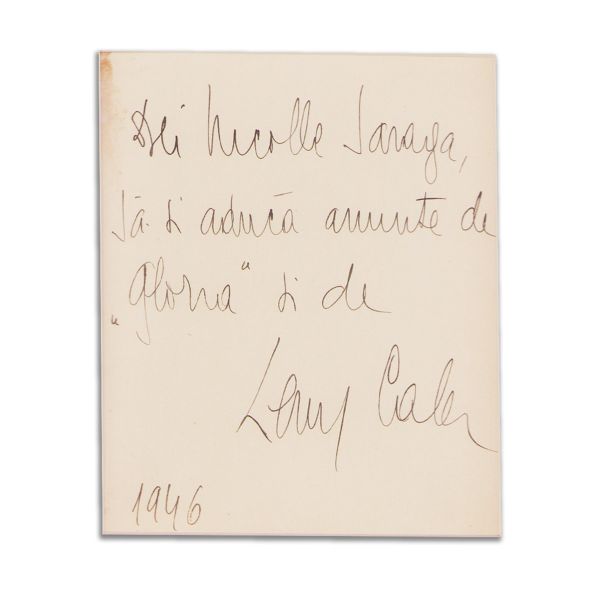 Dlei Nicolle Saraga,
Să-și aducă aminte de
„Gloria" și de
Leny Caler
1946